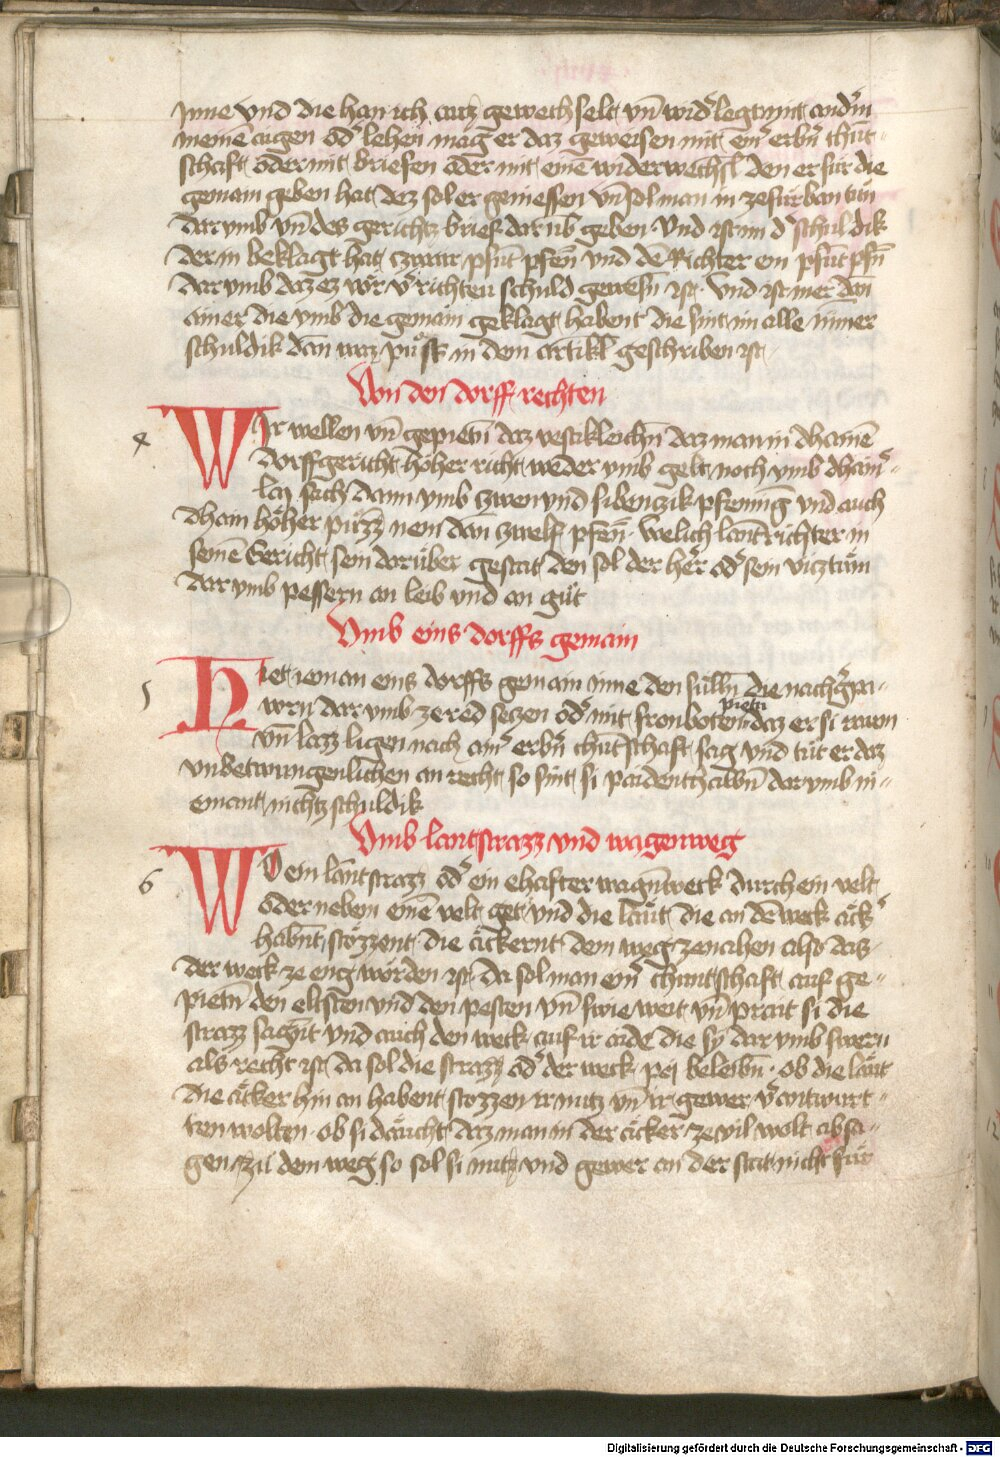 Inne vnd die han ich auz gewechselt vn̄ wid᷑ legt mit and᷑n
meinē aigen od᷑ lehen mag er daz geweisen mit ein᷑ erbn᷑ chūt-
schaft oder mit briefen oder mit einē widerwechsl den er für die
gemain geben hat dez sol er geniessen vn̄ sol man in ze fürban tun
dar vmb vn̄ des gerichtz brief dar vb᷑ geben · Vnd ist im d᷑ schuldik
der in beklagt hat zwai pfūt pfen̄ vnd dē Richter ein pfūt pfn̄
dar vmb daz ez vor v᷑richten schuld gewesn̄ ist · Vnd ist mer dan̄
ainer die vmb die gemain geklagt habent die sint im alle nimer
schuldik dan̄ waz puͦsse in dem artikl geschriben ist
Von den dorff rechten
4 Wir wellen vn̄ gepietn̄ daz vestikleichn̄ daz man in dhainē
dorffgericht höher richt weder vmb gelt noch vmb dhain᷑-
lay sach dann vmb zwen vnd sibenczik pfenning vnd auch
dhain höher puͤzz nem dan̄ zwelf pfen̄ · Welich lantrichter in
seinē Gericht sein darüber gestat den sol der her᷑ od᷑ sein viztüm
dar vmb pessern an leib vnd an güt
Vmb eins dorffs gemain
5 Hiet ieman eins dorffs gemain Inne den sülln̄ die nachg᷑pa-
wrn dar vmb ze red seczen od᷑ mit fronboten pietn daz er si raum
vn̄ lazz ligen nach ain᷑ erbn᷑ chūtschaft sag vnd tüt er daz
vnbetwungenlichen an recht so sint si paidenthalbn̄ dar vmb ni-
emant nichtz schuldik
Vmb lantstrazz vnd wagenweg
6 Wo ein lantstrazz od᷑ ein ehafter wagn̄weck durch ein velt
oder neben einē velt get vnd die läut die an dē weck äck᷑
habnt stözzent die äckernt dem weg ze nahen also das
der weck ze eng worden ist da sol man ein᷑ chuntschaft auf ge-
pietn̄ den eltsten vnd den pesten vn̄ swie weit vn̄ prait si die
strazz sagnt vnd auch den weck auf ir aide die sy dar vmb swern
als recht ist da sol die strazz od᷑ der weck pei beleibn̄ · ob die läut
die äcker hin an habent stozzen ir nutz vn̄ ir gewer v᷑antwurt-
ten wolten · ob si däucht daz man in der äcker ze vil wolt absa-
gen zü dem weg so sol si nutz vnd gewer an der stat nicht für
Digitalisierung gefördert durch die Deutsche Forschungsgemeinschaft - DFG